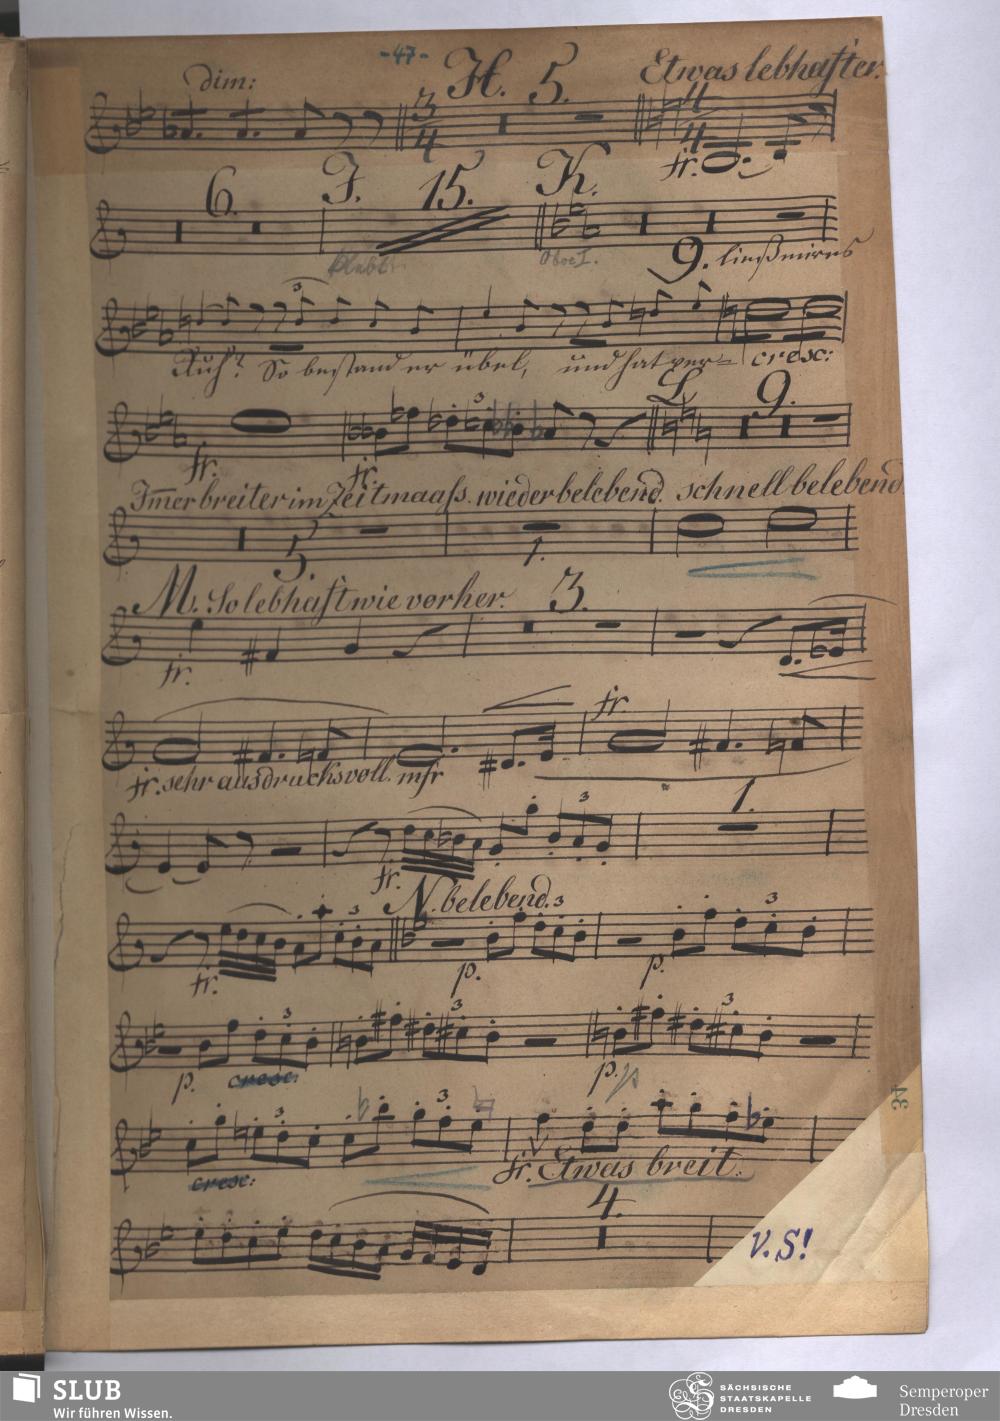 -47-
dim: H. 5. Etwas lebhafter.
3 4 4 4
fr.
6. J. 15. K.
Oboe I.
9. ließ mirs
3
Ruh? So bestand er übel, und hat ver= cresc:
L. 9.
3
fr. fr.
Immer breiter im Zeitmaass. wieder belebend. schnell belebend.
5. 1.
M. So lebhaft wie vorher. 3.
fr.
fr.
fr. sehr ausdrucksvoll. mfr
1.
3
fr.
N. belebend. 3
3 3
fr. p. p.
3 3 3
p. cresc: p. p
3 3
cresc: fr. Etwas breit.
4.
V. S!
34
SLUB
Wir führen Wissen.
SÄCHSISCHE
STAATSKAPELLE
DRESDEN
Semperoper
Dresden